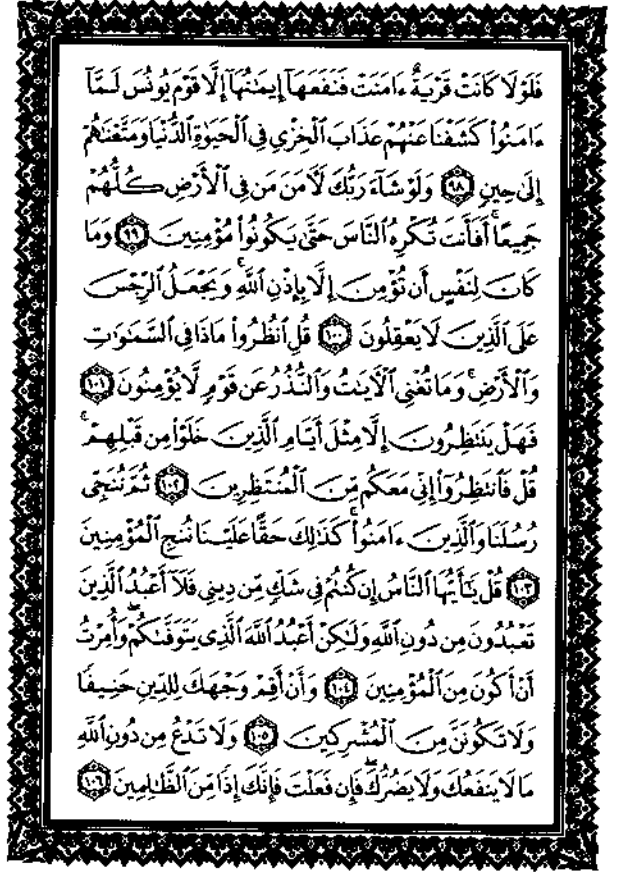 فَلَوْلَا كَانَتْ قَرْيَةٌ ءَامَنَتْ فَنَفَعَهَآ إِيمَٰنُهَآ إِلَّا قَوْمَ يُونُسَ لَمَّآ
ءَامَنُوا۟ كَشَفْنَا عَنْهُمْ عَذَابَ ٱلْخِزْىِ فِى ٱلْحَيَوٰةِ ٱلدُّنْيَا وَمَتَّعْنَٰهُمْ
إِلَىٰ حِينٍ ٩٨ وَلَوْ شَآءَ رَبُّكَ لَـَٔامَنَ مَن فِى ٱلْأَرْضِ كُلُّهُمْ
جَمِيعًا ۚ أَفَأَنتَ تُكْرِهُ ٱلنَّاسَ حَتَّىٰ يَكُونُوا۟ مُؤْمِنِينَ ٩٩ وَمَا
كَانَ لِنَفْسٍ أَن تُؤْمِنَ إِلَّا بِإِذْنِ ٱللَّهِ ۚ وَيَجْعَلُ ٱلرِّجْسَ
عَلَى ٱلَّذِينَ لَا يَعْقِلُونَ ١٠٠ قُلِ ٱنظُرُوا۟ مَاذَا فِى ٱلسَّمَٰوَٰتِ
وَٱلْأَرْضِ ۚ وَمَا تُغْنِى ٱلْـَٔايَٰتُ وَٱلنُّذُرُ عَن قَوْمٍ لَّا يُؤْمِنُونَ ١٠١
فَهَلْ يَنتَظِرُونَ إِلَّا مِثْلَ أَيَّامِ ٱلَّذِينَ خَلَوْا۟ مِن قَبْلِهِمْ ۚ
قُلْ فَٱنتَظِرُوٓا۟ إِنِّى مَعَكُم مِّنَ ٱلْمُنتَظِرِينَ ١٠٢ ثُمَّ نُنَجِّى
رُسُلَنَا وَٱلَّذِينَ ءَامَنُوا۟ ۚ كَذَٰلِكَ حَقًّا عَلَيْنَا نُنجِ ٱلْمُؤْمِنِينَ
١٠٣ قُلْ يَٰٓأَيُّهَا ٱلنَّاسُ إِن كُنتُمْ فِى شَكٍّ مِّن دِينِى فَلَآ أَعْبُدُ ٱلَّذِينَ
تَعْبُدُونَ مِن دُونِ ٱللَّهِ وَلَٰكِنْ أَعْبُدُ ٱللَّهَ ٱلَّذِى يَتَوَفَّىٰكُمْ ۖ وَأُمِرْتُ
أَنْ أَكُونَ مِنَ ٱلْمُؤْمِنِينَ ١٠٤ وَأَنْ أَقِمْ وَجْهَكَ لِلدِّينِ حَنِيفًا
وَلَا تَكُونَنَّ مِنَ ٱلْمُشْرِكِينَ ١٠٥ وَلَا تَدْعُ مِن دُونِ ٱللَّهِ
مَا لَا يَنفَعُكَ وَلَا يَضُرُّكَ ۖ فَإِن فَعَلْتَ فَإِنَّكَ إِذًا مِّنَ ٱلظَّٰلِمِينَ ١٠٦